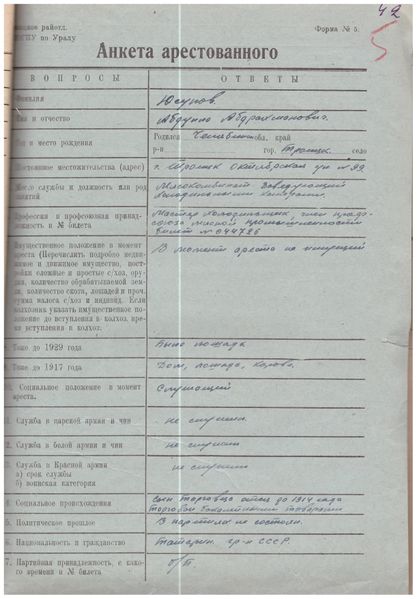 42
5
районд.
ОГПУ по Уралу
Форма № 5.
Анкета арестованного
ВОПРОСЫ
ОТВЕТЫ
Фамилия
Юсупов.
Имя и отчество
Абдулла Абдрахманович.
Год и место рождения
Родился Челябинск обл. край
р-н гор. Троицк. село
Постоянное местожительства (адрес)
г. Троицк Октябрьская ул № 99
Место службы и должность или род
занятий
Мясокомбинат Заведующий
Профессия и профсоюзная принад-
лежность и № билета
Мастер член проф-
союза мясной промышленности
билет № 044726
Имущественное положение в момент
ареста (Перечислить подробно недви-
жимое и движимое имущество, пост-
ройки сложные и простые с/хоз, ору-
дия, количество обрабатываемой зем-
ли, количество скота, лошадей и проч,
сумма налога с/хоз и индивид. Если
колхозник указать имущественное по-
ложение до вступления в колхоз, вре-
мя вступления в колхоз.
В момент ареста не имущий
Тоже до 1929 года
Была лошадь
Тоже до 1917 года
Дом, лошадь, корова.
10. Социальное положение в момент
ареста.
Служащий
11. Служба в царской армии и чин
не служил.
12. Служба в белой армии и чин
не служил
13. Служба в Красной армии
а) срок службы
б) воинская категория
не служил
14. Социальное происхождения
Сын торговца отец до 1914 года
торговал товарами
15. Политическое прошлое
В партиях не состоял.
16. Национальность и гражданство
Татарин. гр-н СССР
17. Партийная принадлежность, с како-
го времени и № билета
б/п.